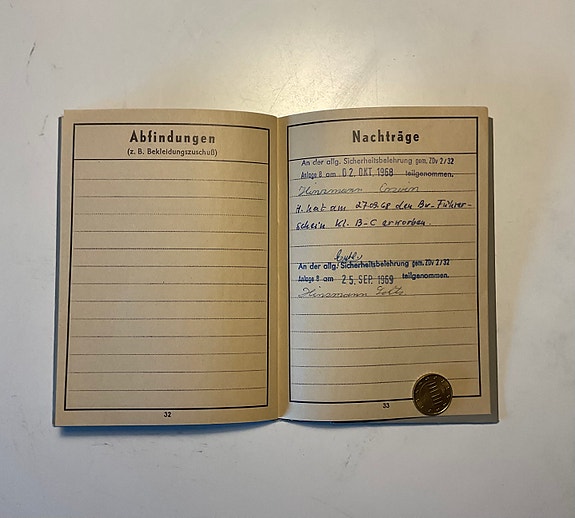 Abfindungen
(z. B. Bekleidungszuschuß)
32
Nachträge
An der allg. Sicherheitsbelehrung gem. ZDv 2/32
Anlage B am 02. OKT. 1968 teilgenommen.
Hinzmann
H. hat am 27.09.68 den Bw-Führer-
schein Kl. B-C erworben.
An der allg. Sicherheitsbelehrung gem. ZDv 2/32
Anlage B am 25. SEP. 1969 teilgenommen.
Hinzmann
33